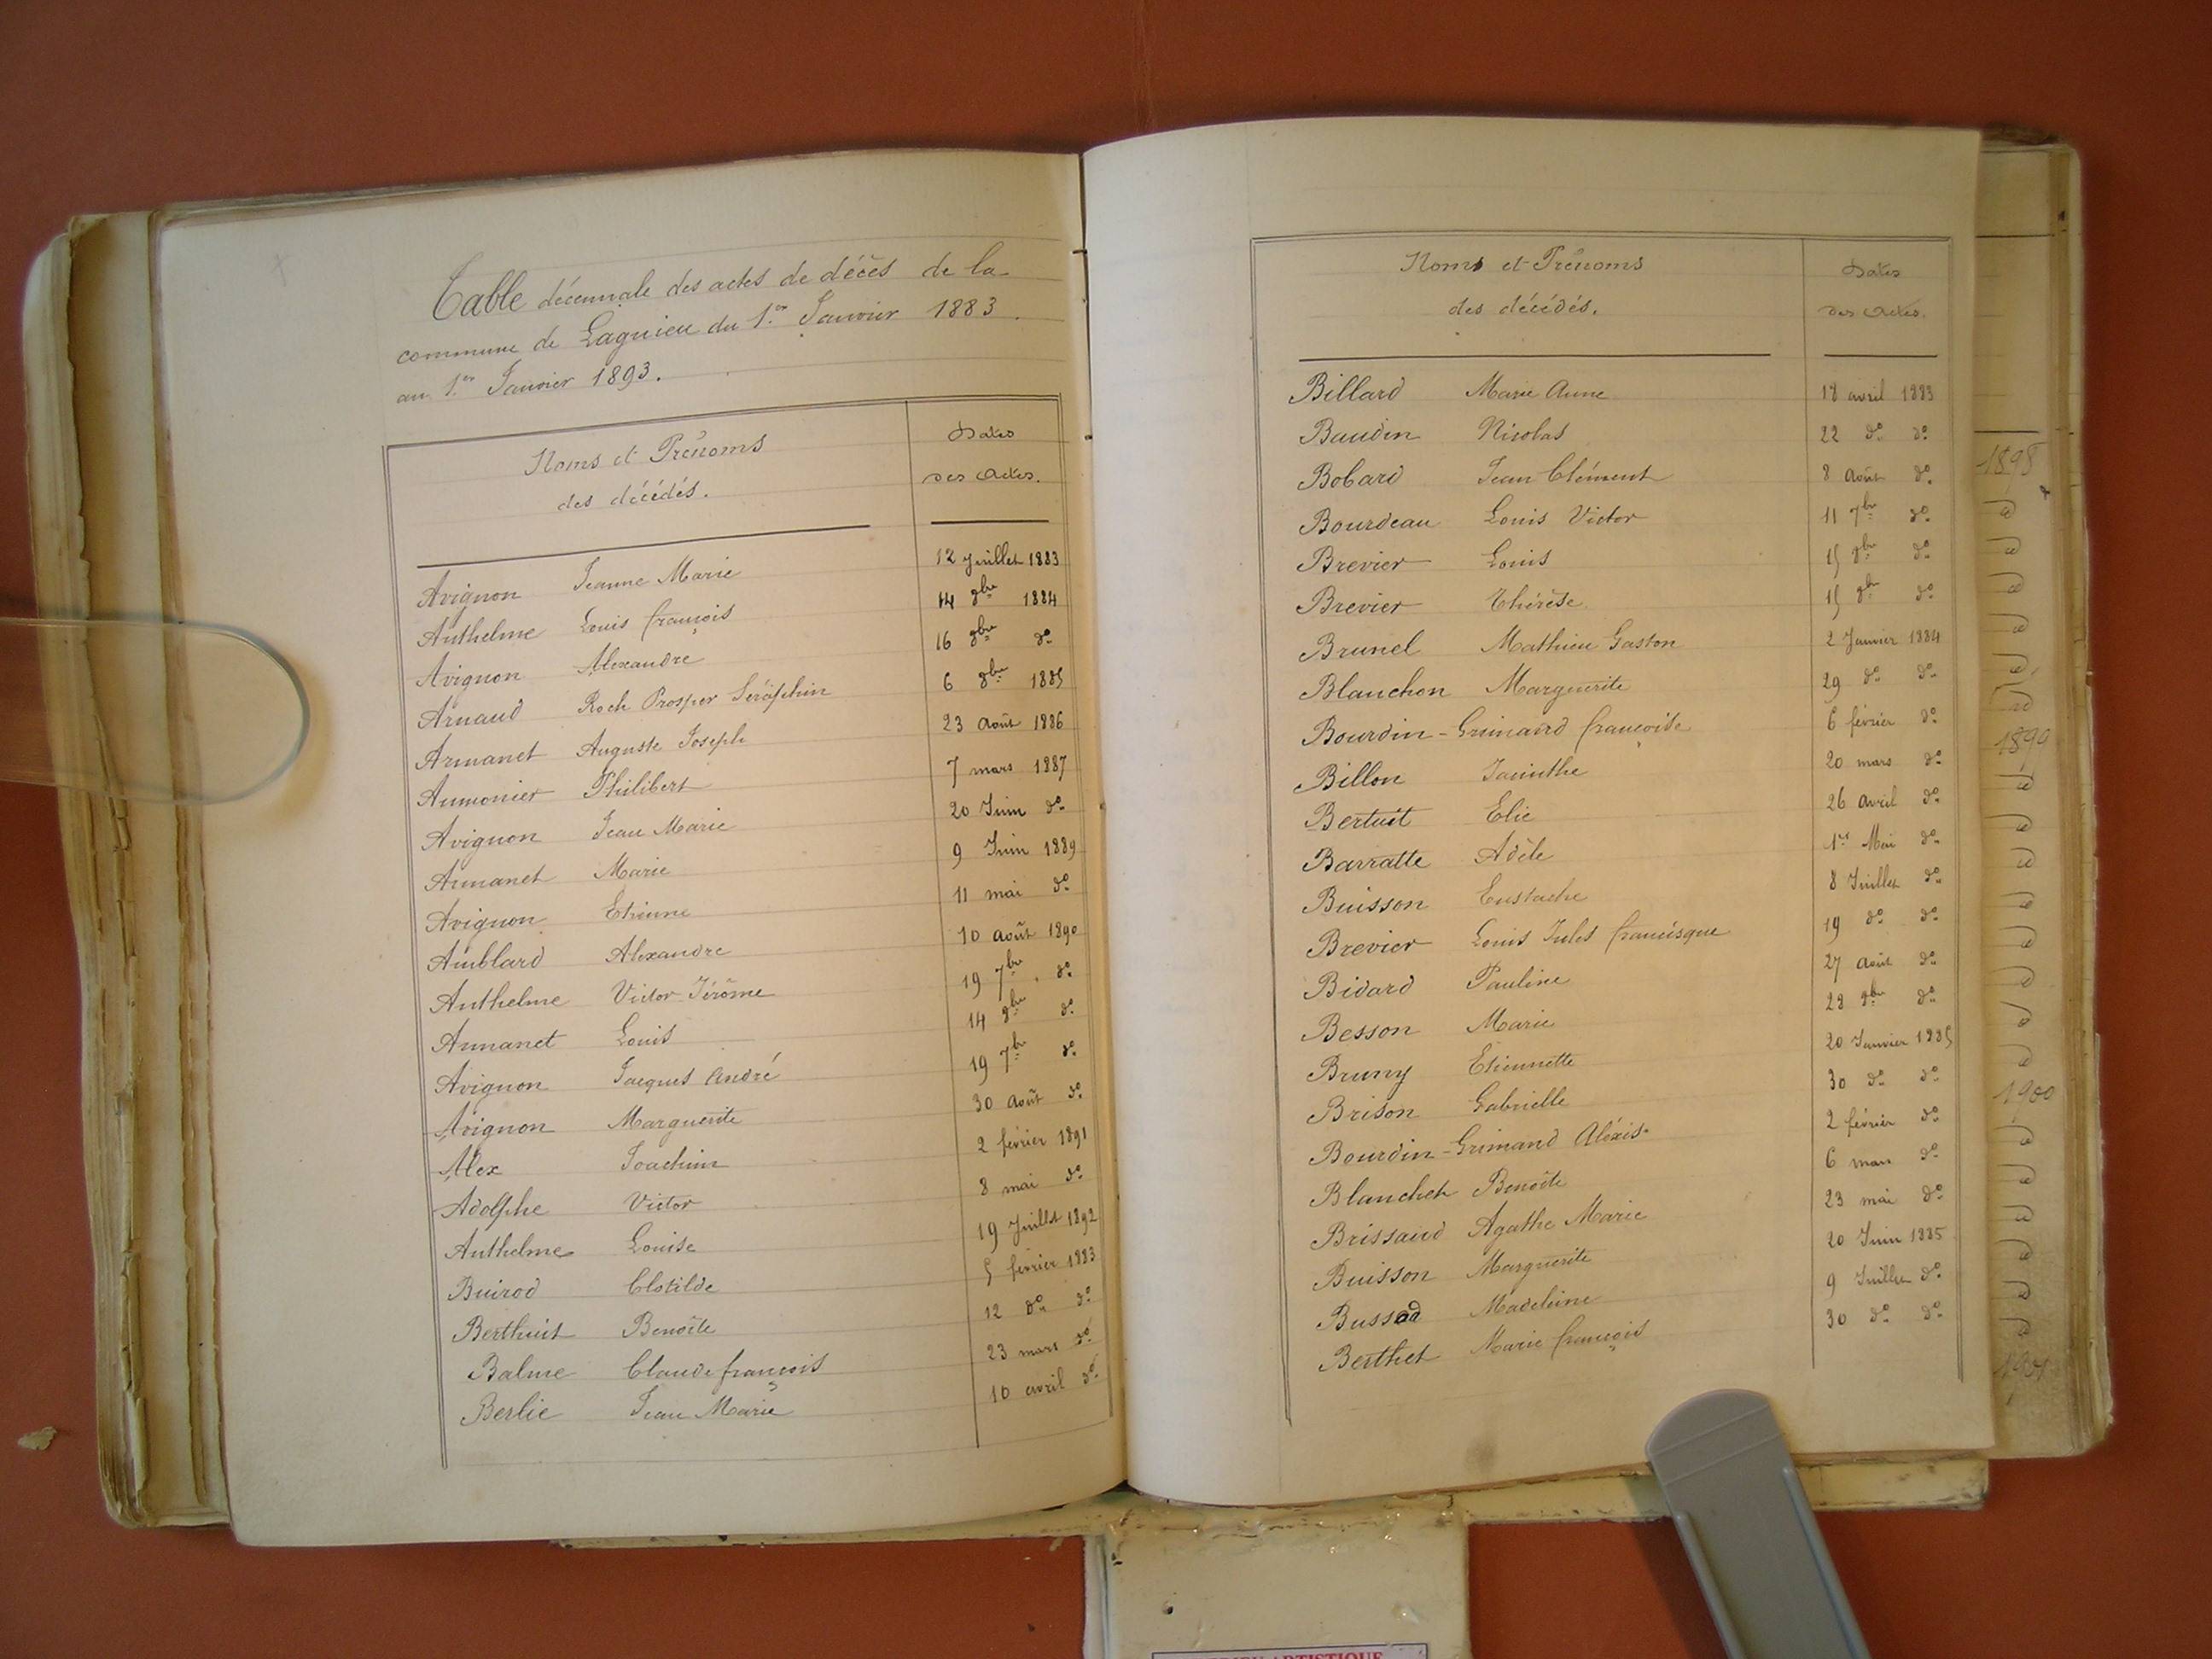 Table décennale des actes de décès de la
commune de Lagnieu du 1.er Janvier 1883.
au 1.er Janvier 1893.
Noms et Prénoms
des décédés.
Dates
des Actes.
Avignon Jeanne Marie 12 Juillet 1883
Anthelme Louis françois 14 8bre 1884
Avignon Alexandre 16 8bre do
Arnaud Roch Prosper Séraphin 6 8bre 1885
Armanet Auguste Joseph 23 Août 1886
Aumonier Philibert 7 mars 1887
Avignon Jean Marie 20 Juin do
Armanet Marie 9 Juin 1889
Avignon Etienne 11 mai do
Amblard Alexandre 10 août 1890
Anthelme Victor Jérôme 19 7bre do
Armanet Louis 14 8bre do
Avignon Jacques André 19 7bre do
Avignon Marguerite 30 Août do
Alex Joachim 2 février 1891
Adolphe Victor 8 mai do
Anthelme Louise 19 Juillet 1892
Buirod Clotilde 5 février 1883
Berthuit Benoîte 12 do do
Balme Claude françois 23 mars do
Berlie Jean Marie 10 avril do
Noms et Prénoms
des décédés.
Dates
des Actes.
Billard Marie Anne 18 avril 1883
Baudin Nicolas 22 do do
Bobard Jean Clément 8 Août do
Bourdeau Louis Victor 11 7bre do
Brevier Louis 15 8bre do
Brevier Thérèse 15 8bre do
Brunel Mathieu Gaston 2 Janvier 1884
Blanchon Marguerite 29 do do
Bourdin-Grimand françoise 6 février do
Billon Jacinthe 20 mars do
Bertuit Elie 26 Avril do
Barratte Adèle 1er Mai do
Buisson Eustache 8 Juillet do
Brevier Louis Jules francisque 19 do do
Bidard Pauline 27 Août do
Besson Marie 28 8bre do
Bruny Etiennette 20 Janvier 1885
Brison Gabrielle 30 do do
Bourdin-Grimand Aléxis 2 février do
Blanchet Benoîte 6 mars do
Brissaud Agathe Marie 23 mai do
Buisson Marguerite 20 Juin 1885
Bussod Madeleine 9 Juillet do
Berthet Marie françois 30 do do
1898
1900